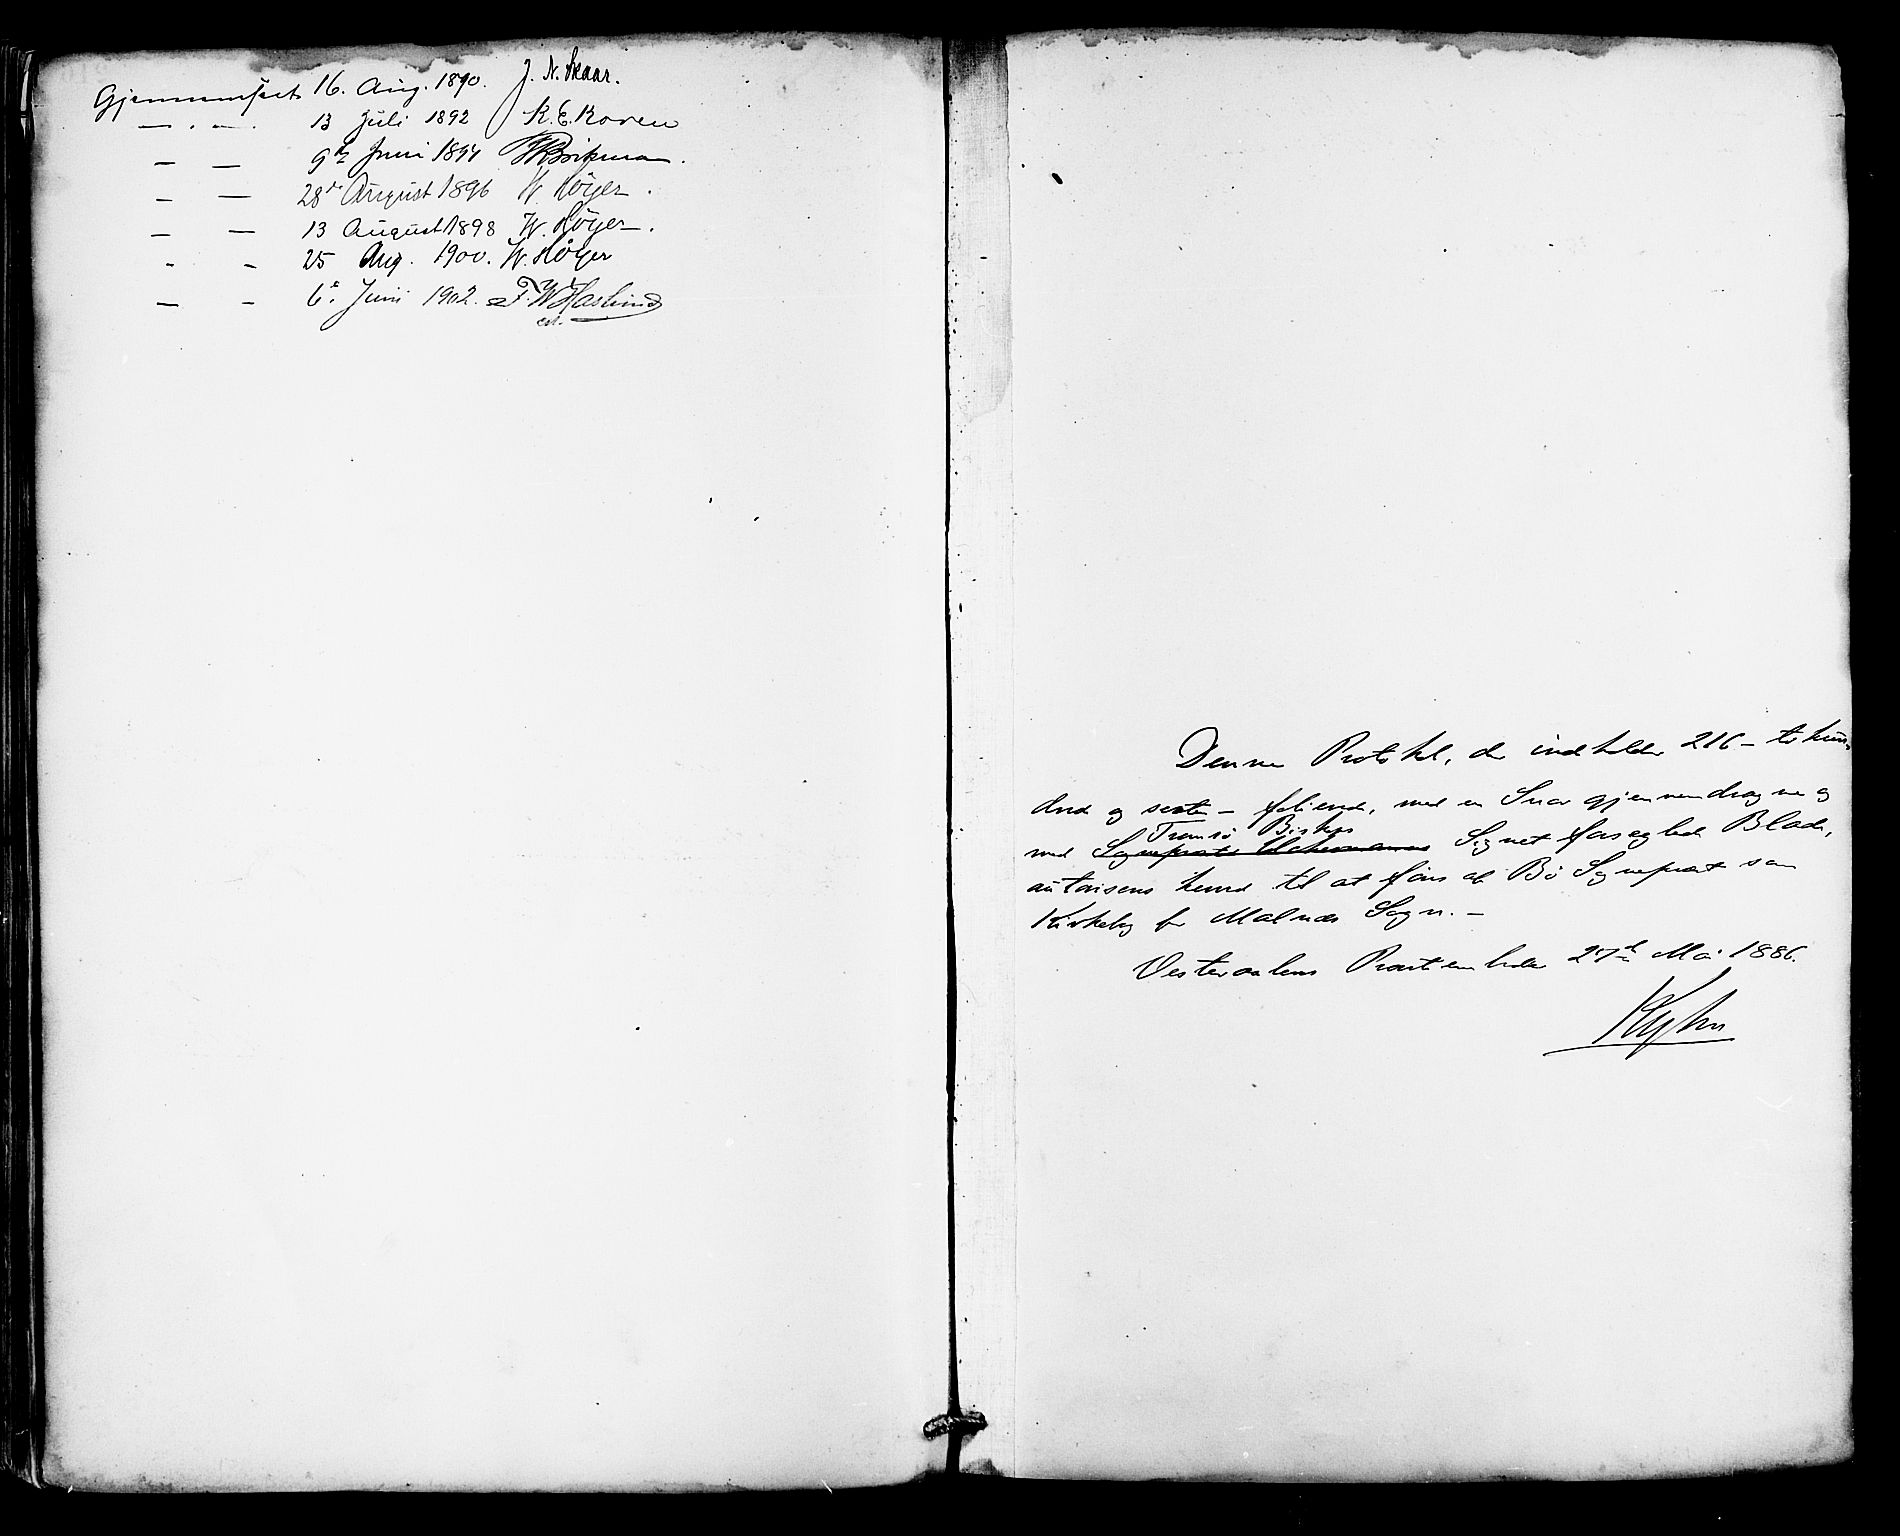 Gjennemseet 16. Aug. 1890. J. N. Skaar.
— " — 13 Juli 1892 K. E. Koren
— — 9de Juni 1894
— — 28de August 1896 W. Høyer.
— — 13 August 1898 W. Høyer.
- - 25 Aug. 1900. W. Høyer
— - 6te Juni 1902. F. W. Haslund
cst.
Denne Protokol, der indholder 216 – to hun-
dred og sexten – folierede, med en Snor gjennemdragne og
Tromsø Biskops
med Sogneprest Signet forseglede Blade,
autoriseres herved til at føres af Bø Sogneprest som
Kirkebog for Malnæs Sogn. –
Vesteraalens Provstiembede 27de Mai 1886.